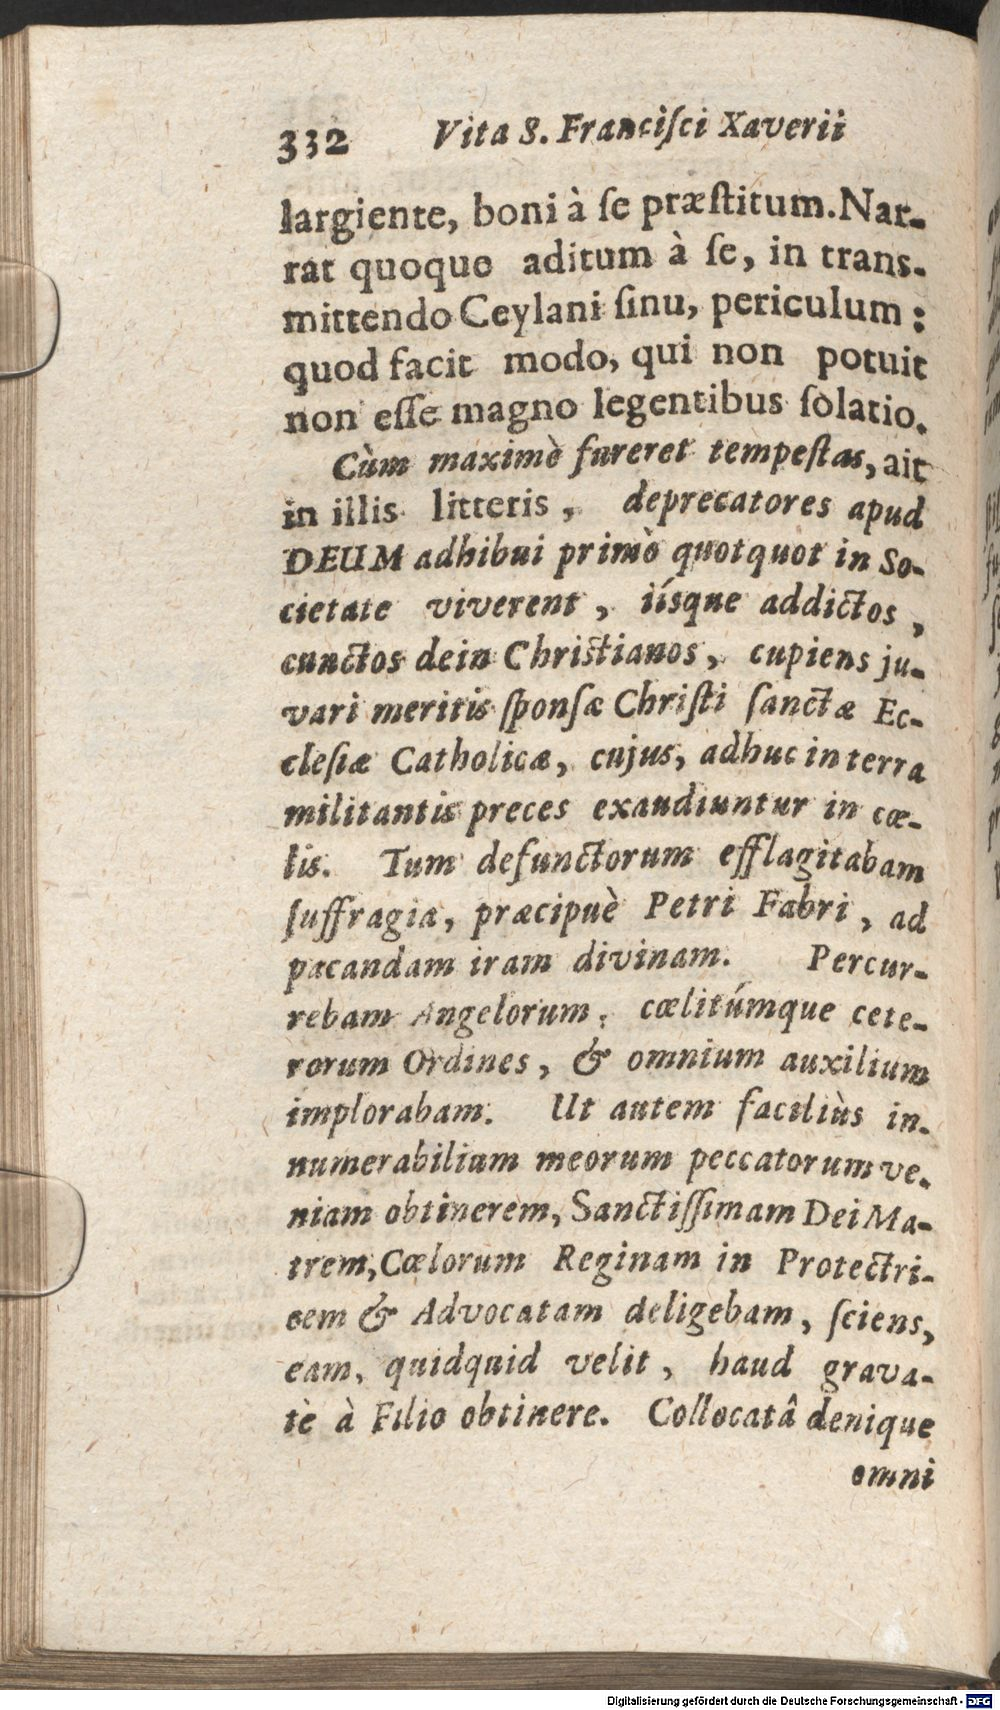 332 Vita S. Franciſci Xaverii
largiente, boni à ſe præſtitum. Nar-
rat quoque aditum à ſe, in trans-
mittendo Ceylani ſinu, periculum:
quod facit modo, qui non potuit
non eſſe magno legentibus ſolatio.
Cùm maximè fureret tempeſtas, ait
in illis litteris, deprecatores apud
DEUM adhibui primò quotquot in So-
cietate viverent, iíſque addictos,
cunctos dein Chriſtianos, cupiens ju-
vari meritis ſponſæ Chriſti ſanctæ Ec-
cleſiæ Catholicæ, cujus, adhuc in terra
militantis preces exaudiuntur in cœ-
lis. Tum defunctorum efflagitabam
ſuffragia, præcipuè Petri Fabri, ad
pacandam iram divinam. Percur-
rebam Angelorum, cœlitúmque cete-
rorum Ordines, & omnium auxilium
implorabam. Ut autem faciliùs in-
numerabilium meorum peccatorum ve-
niam obtinerem, Sanctiſſimam Dei Ma-
trem, Cœlorum Reginam in Protectri-
cem & Advocatam deligebam, ſciens,
eam, quidquid velit, haud grava-
tè à Filio obtinere. Collocatâ denique
omni
Digitalisierung gefördert durch die Deutsche Forschungsgemeinschaft - DFG